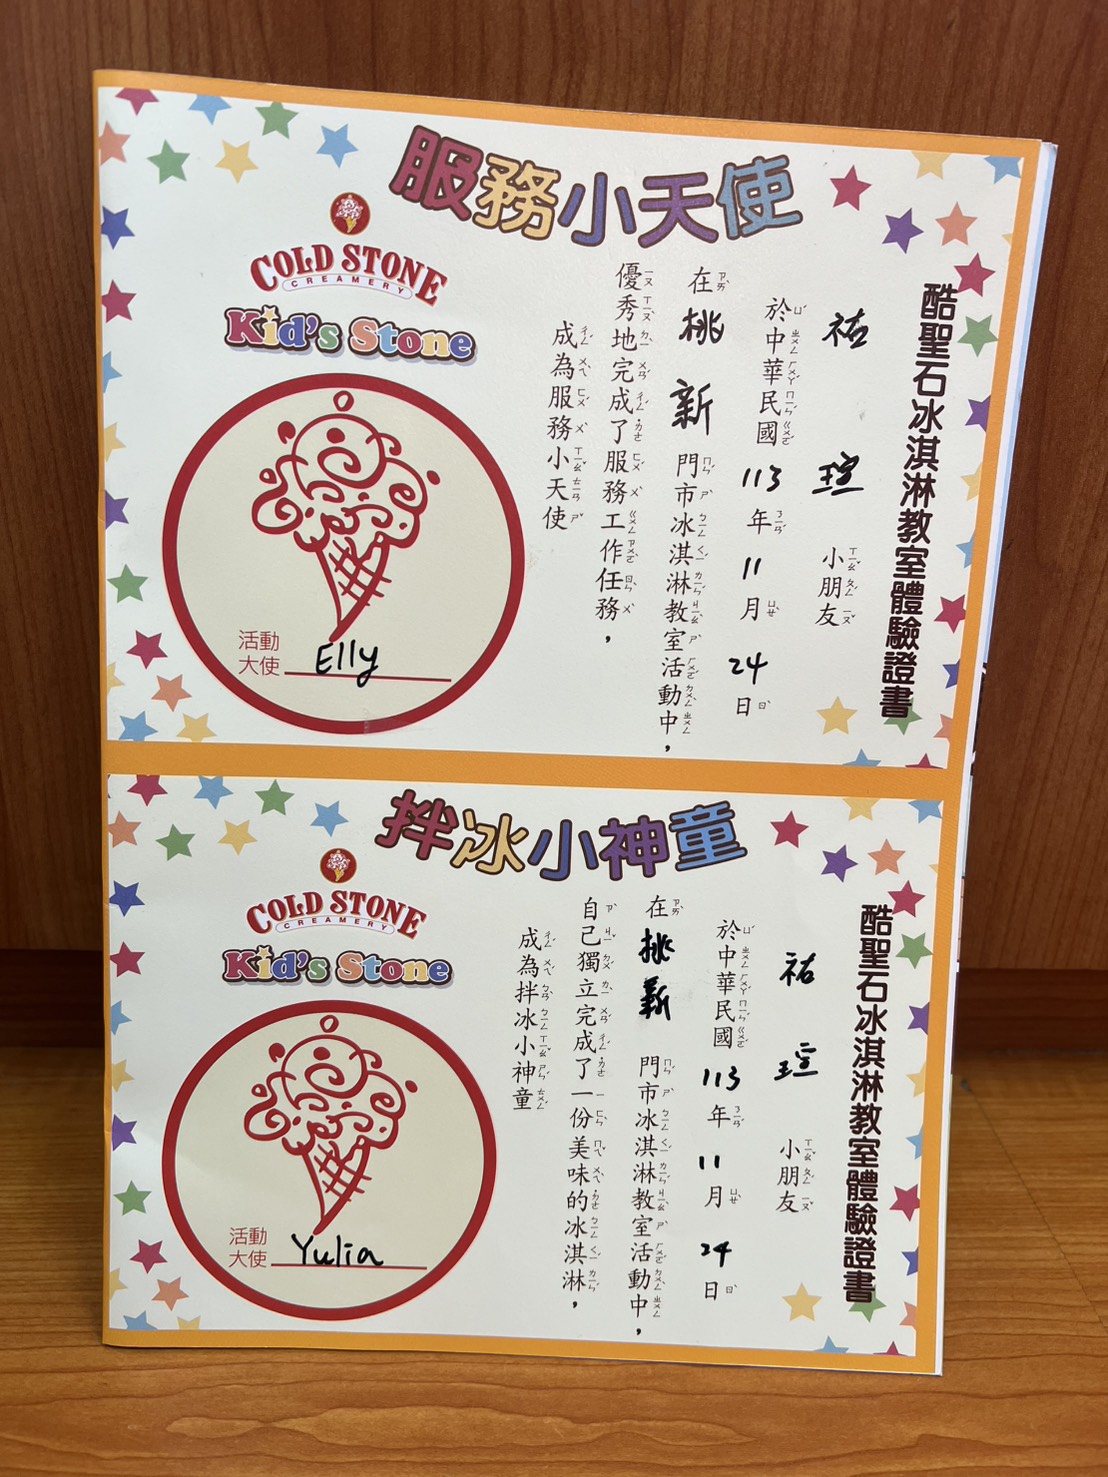 服務小天使
COLD STONE
CREAMERY
Kid's Stone
酷聖石冰淇淋教室體驗證書
祐 瑄 小朋友
於中華民國 113 年 11 月 24 日
在 桃 新 門市冰淇淋教室活動中，
優秀地完成了服務工作任務，
成為服務小天使
活動
大使 Elly
拌冰小神童
COLD STONE
CREAMERY
Kid's Stone
酷聖石冰淇淋教室體驗證書
祐 瑄 小朋友
於中華民國 113 年 11 月 24 日
在 桃 新 門市冰淇淋教室活動中，
自己獨立完成了一份美味的冰淇淋，
成為拌冰小神童
活動
大使 Yulia